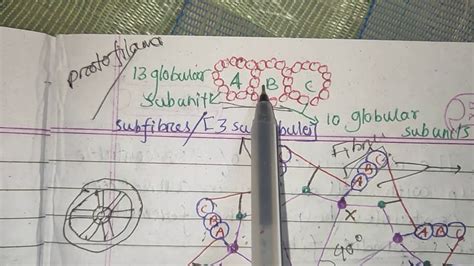 protofilama
A B C
13 globular
subunits
10 globular
subunits
subfibres/[3 su
bules]
C B A
A B C
X
C A A
A B C
90°